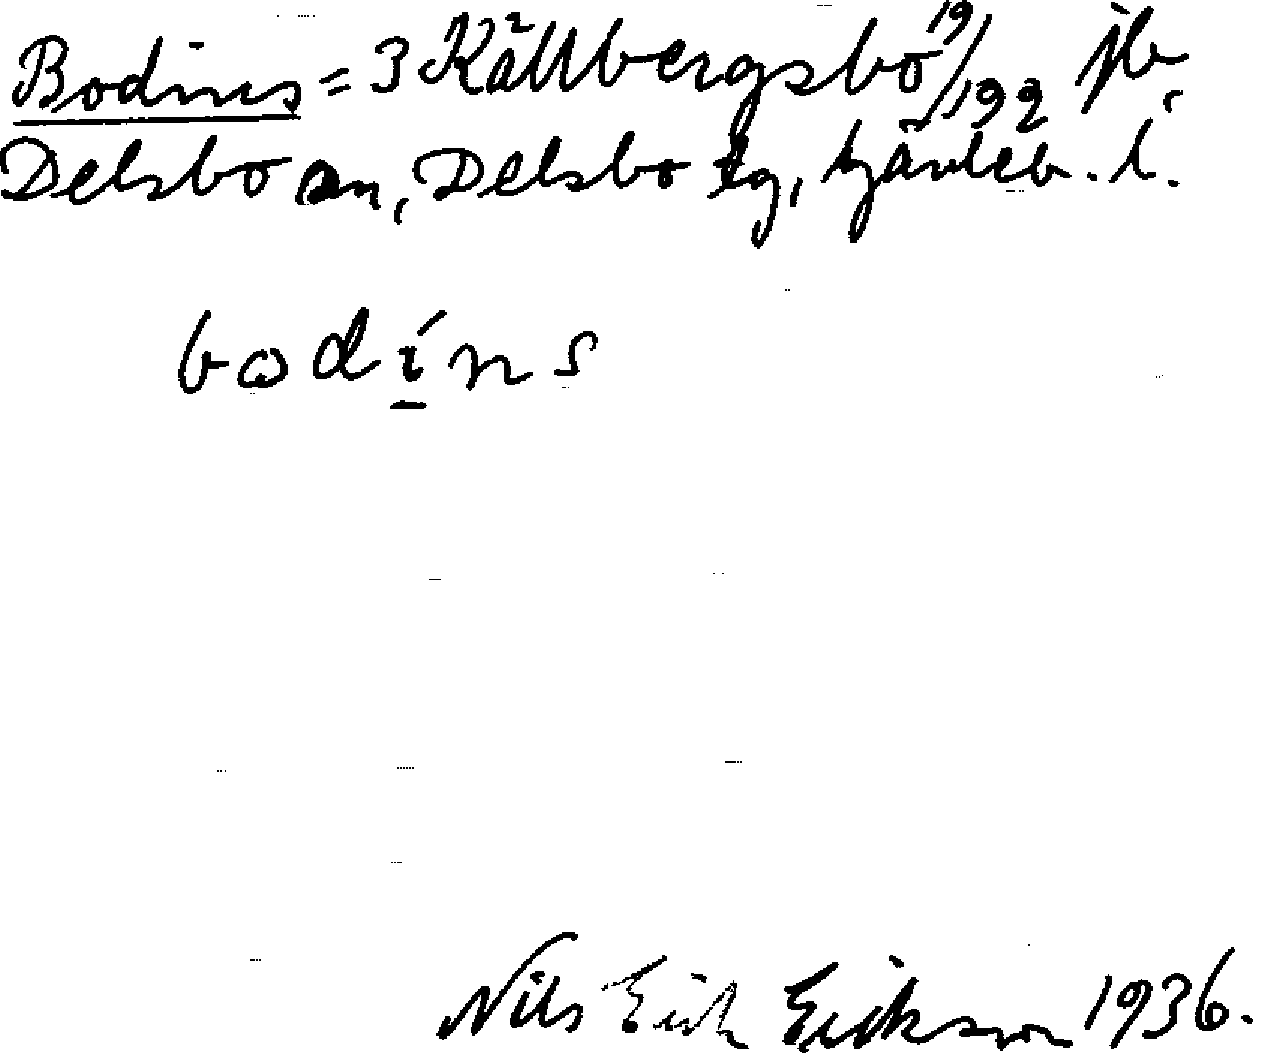 Bodins = 3 Källbergsbo 19/192 jb,
Delsbo sn, Delsbo tg, Gävleb. l.
bodins
Nils Erik Erikson 1936.